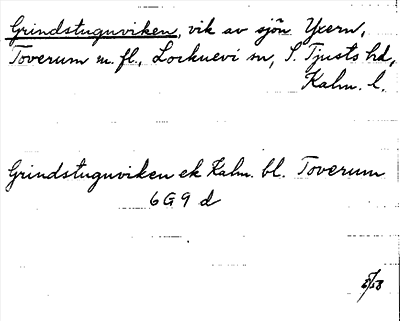 Grindstuguviken, vik av sjön Yxern,
Toverum m. fl., Locknevi sn, S. Tjusts hd,
Kalm. l.
Grindstuguviken ek Kalm. bl. Toverum
6G9 d